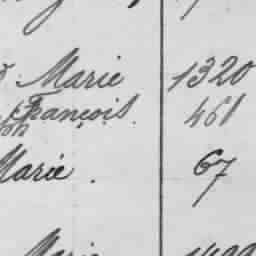 Marie 1320
François 461
Marie. 67
Marie